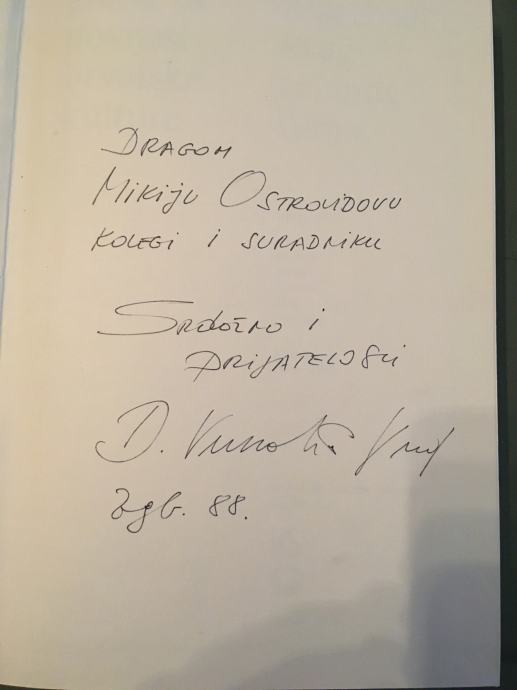 DRAGOM
MIKIJU OSTROVIDOVU
KOLEGI I SURADNIKU
SRDAČNO I
PRIJATELJSKI
D.
Zgb. 88.